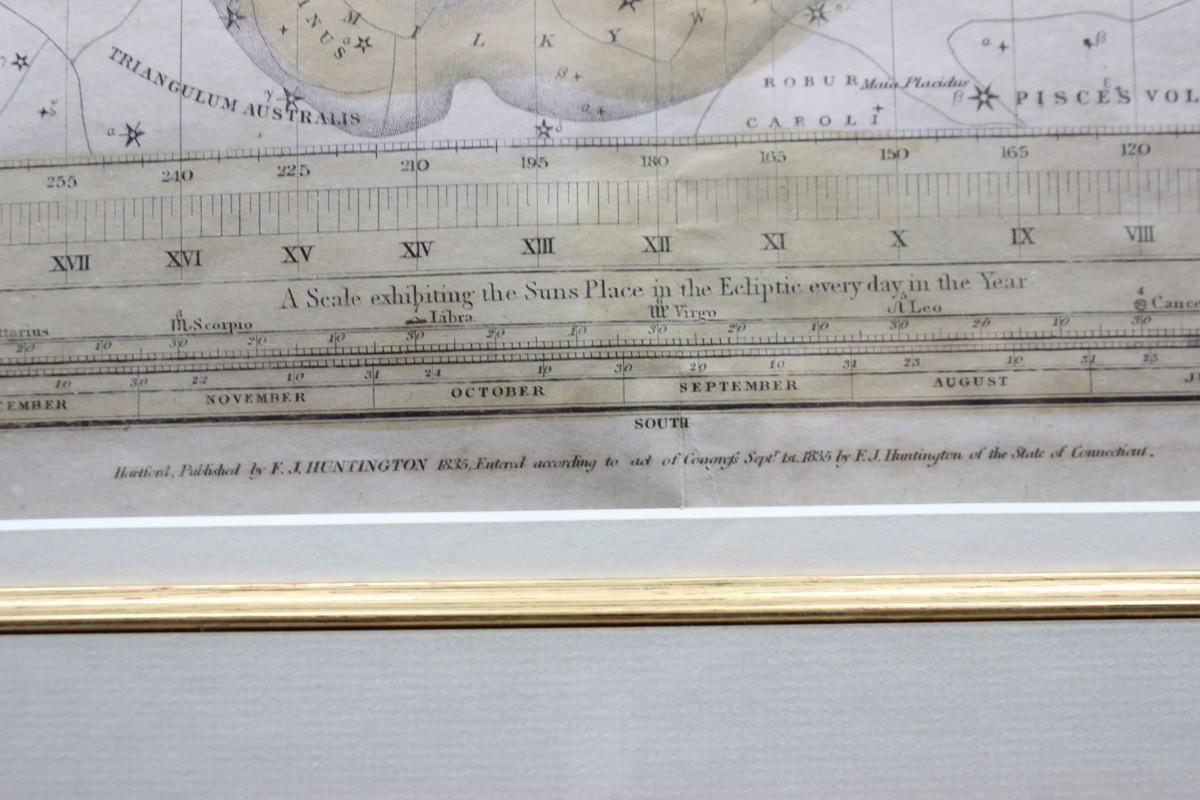 INUS
MILKY W
α
γ
TRIANGULUM AUSTRALIS
α
β
α
δ
ROBUR
CAROLI
Maia Placidus
β
α
β
ε
PISCES VOL
255 240 225 210 195 180 165 150 165 120
XVII XVI XV XIV XIII XII XI X IX VIII
A Scale exhibiting the Suns Place in the Ecliptic every day in the Year
ttarius ♏ Scorpio ♎ Libra ♍ Virgo ♌ Leo ♋ Cance
20 10 30 20 10 30 20 10 30 20 10 30 20 10 30
10 30 22 10 31 24 10 30 20 10 31 23 10 31 25
CEMBER NOVEMBER OCTOBER SEPTEMBER AUGUST J
SOUTH
Hartford, Published by F. J. HUNTINGTON 1835, Entered according to act of Congreſs Sept.r 1st. 1835 by F. J. Huntington of the State of Connecticut.